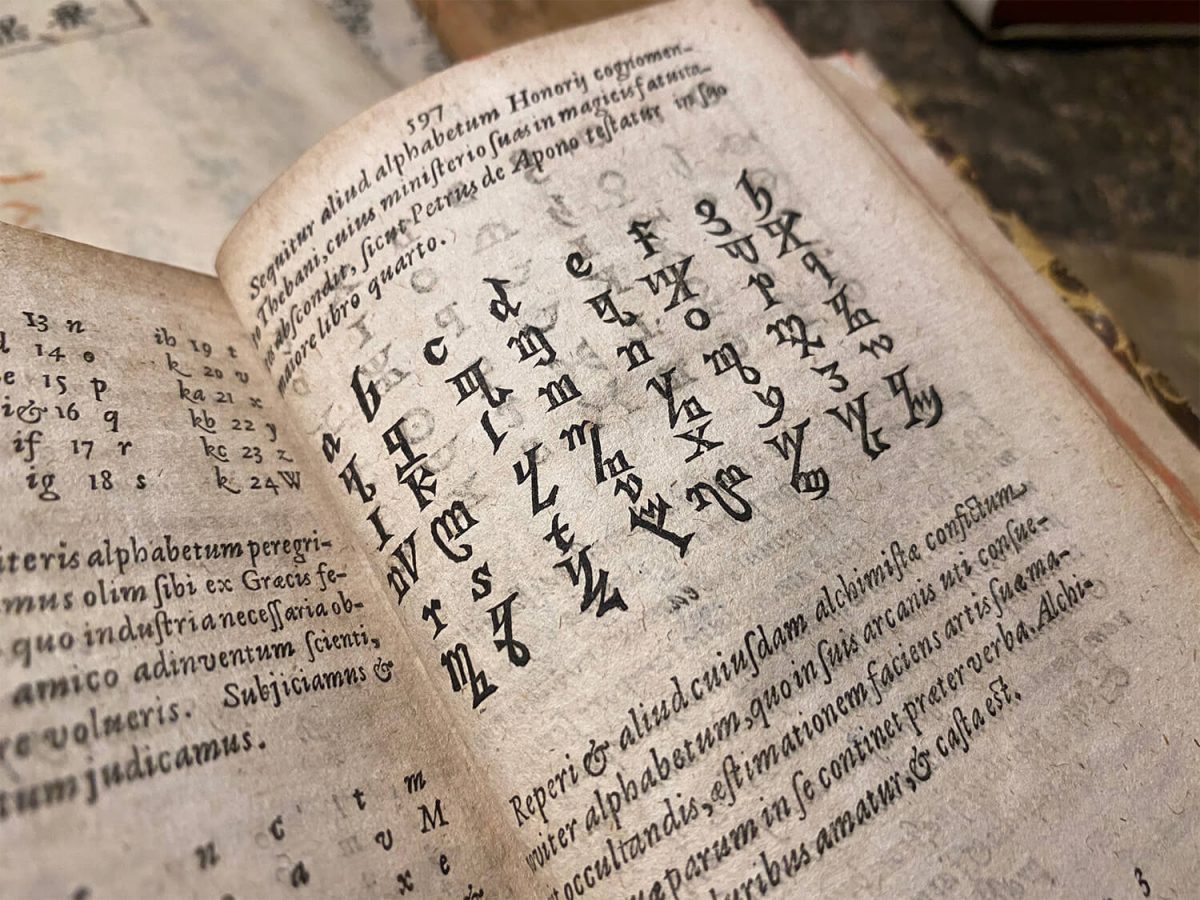 13 n ib 19 t
14 o k 20 v
15 p ka 21 x
i& 16 q kb 22 y
if 17 r kc 23 z
ig 18 s k 24 W
alphabetum peregri-
olim ſibi ex Græcis fe-
quo induſtria neceſſaria ob-
amico adinventum ſcienti,
volueris. Subjiciamus &
judicamus.
n c t m
a v M
x e
597
Sequitur aliud alphabetum Honorij cognomen-
to Thebani, cuius miniſterio ſuas in magicis fatuita-
abſcondit, ſicut Petrus de Apono teſtatur in ſuo
maiore libro quarto.
a b c d e f g h
I k l m n o p q
r s t v x y z w
Reperi & aliud cuiuſdam alchimiſtæ confictum
alphabetum, quo in ſuis arcanis uti conſue-
occultandis, eſtimationem faciens artis ſuæ ma-
parum in ſe continet præter verba. Alchi-
amatur, & caſta eſt.
3